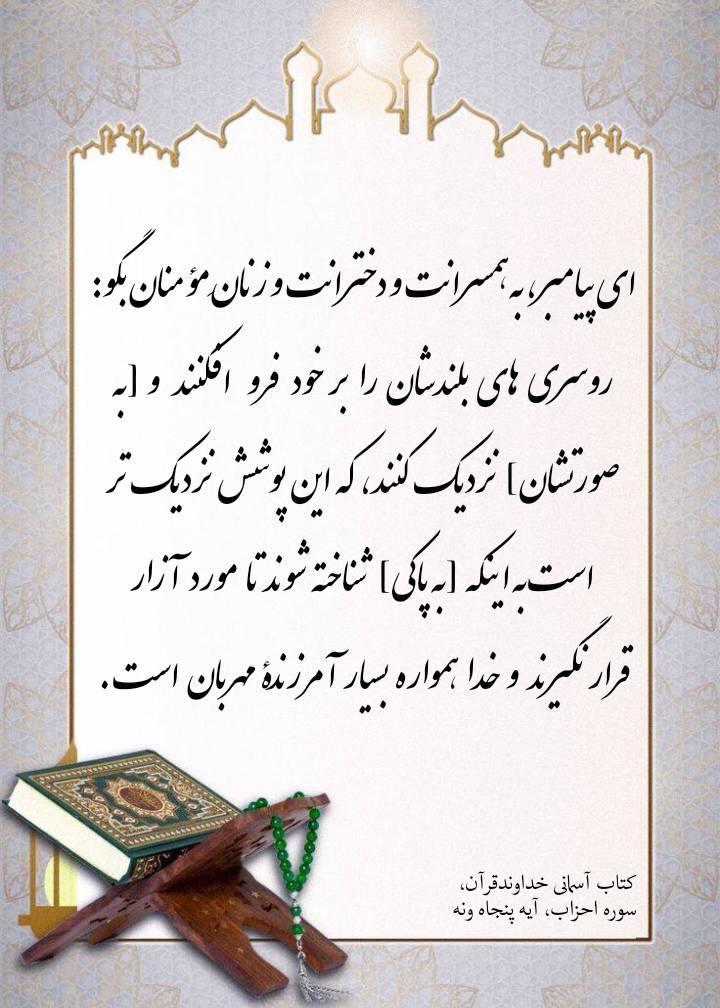 ای پیامبر، به همسرانت و دخترانت و زنان مؤمنان بگو:
روسری های بلندشان را بر خود فرو افکنند و [به
صورتشان] نزدیک کنند، که این پوشش نزدیک تر
است به اینکه [به پاکی] شناخته شوند تا مورد آزار
قرار نگیرند و خدا همواره بسیار آمرزندهٔ مهربان است.
کتاب آسمانی خداوندقرآن،
سوره احزاب، آیه پنجاه ونه